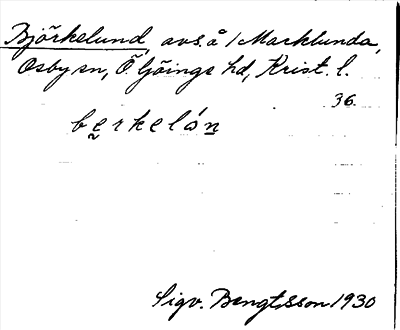 Björkelund, avs. å 1 Marklunda,
Osby sn, Ö. Göinge hd, Krist. l.
36.
bẹrkelón
Sigv. Bengtsson 1930